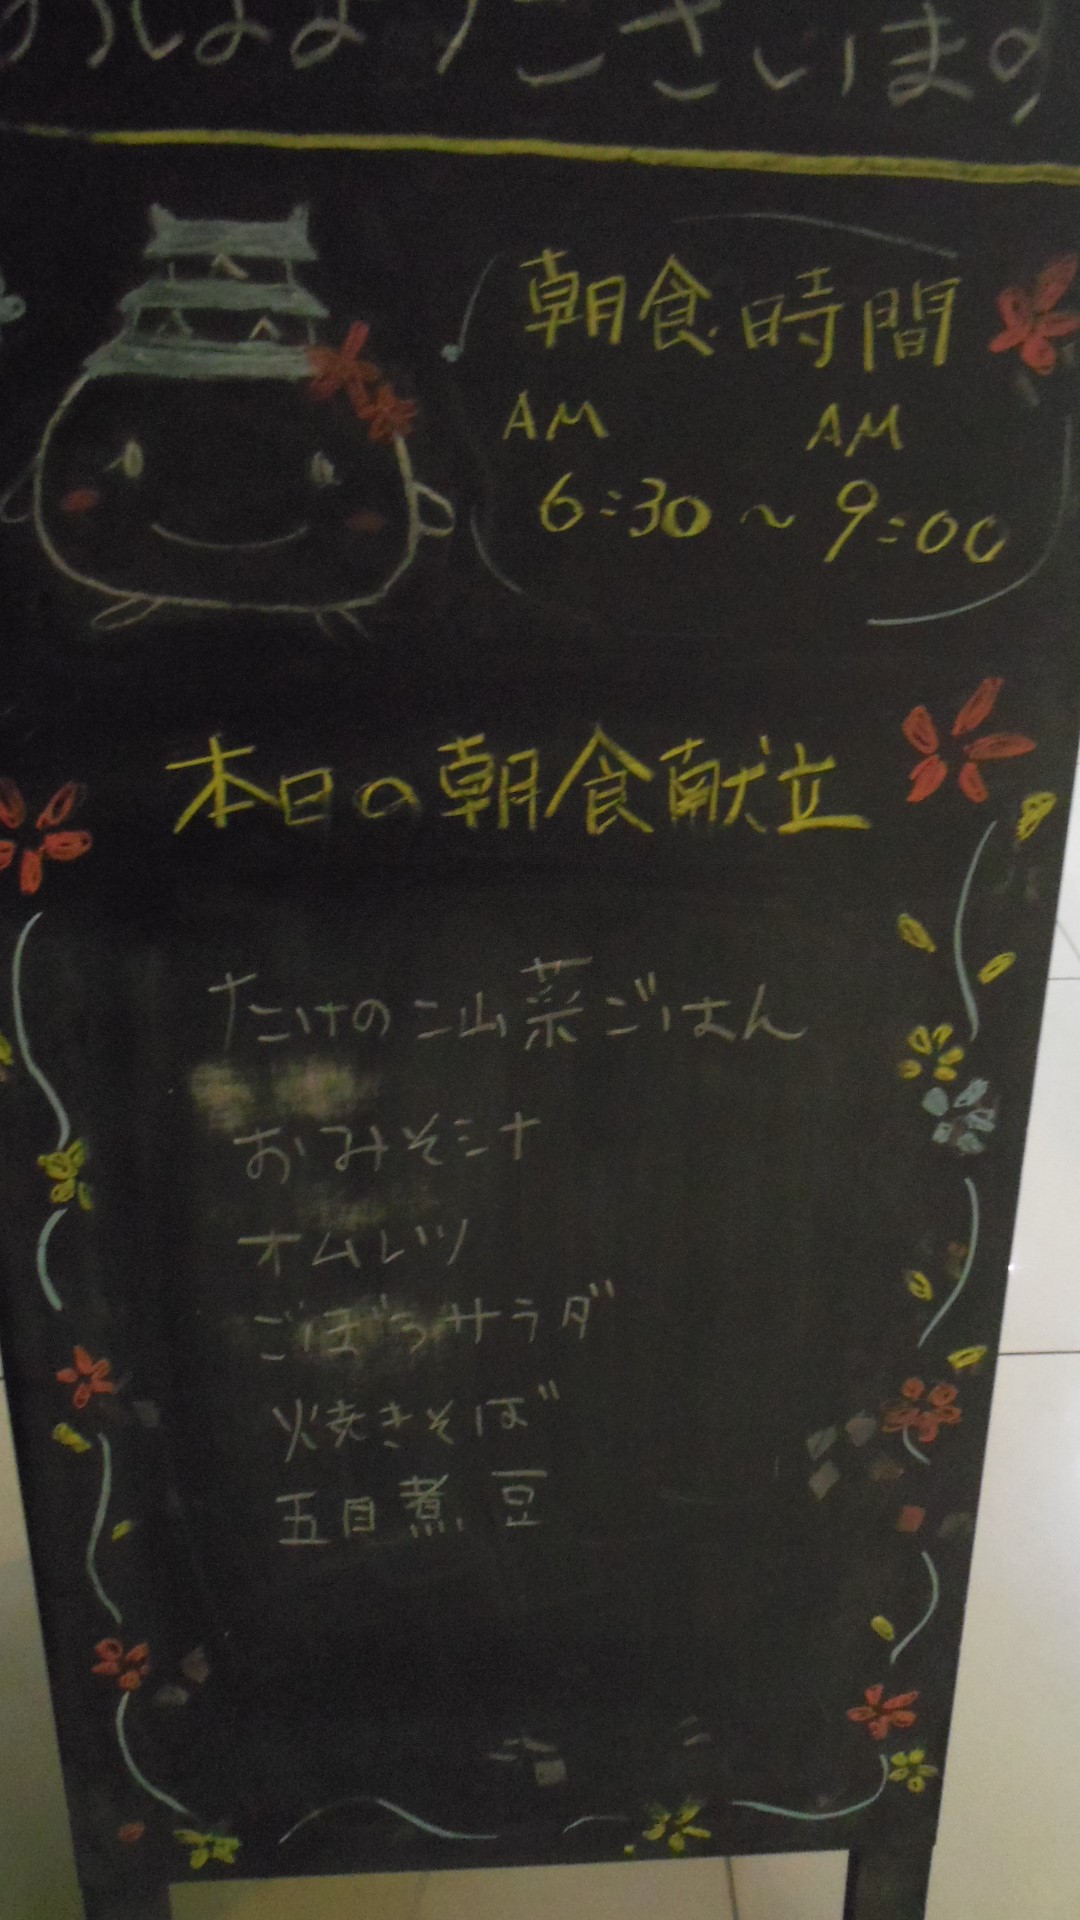 おはようございます
朝食時間
AM AM
6:30～9:00
本日の朝食献立
たけのこ山菜ごはん
おみそ汁
オムレツ
ごぼうサラダ
焼きそば
五目煮豆